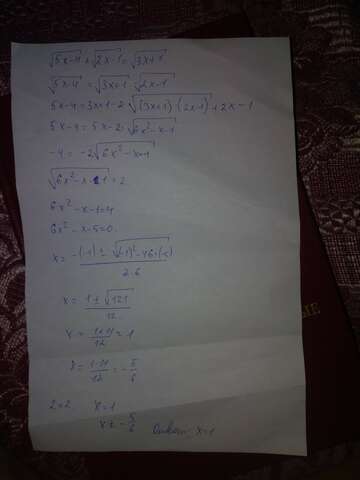 √5x-4 + √2x-1 = √3x+1
√5x-4 = √3x+1 - √2x-1
5x-4=3x+1-2·√(3x+1)·(2x-1)+2x-1
5x-4=5x-2·√6x²-x-1
-4=-2√6x²-x-1
√6x²-x-1=2
6x²-x-1=4
6x²-x-5=0
x= -(-1)±√(-1)²-4·6·(-5)
2·6
x= 1±√121
12
x= 1+11 = 1
12
x= 1-11 = - 5
12 6
2=2 x=1
x≠- 5
6
Ответ: x=1